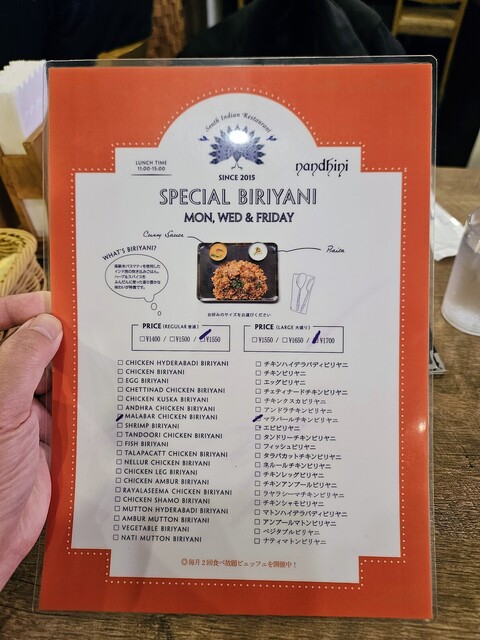 South Indian Restaurant
LUNCH TIME
11:00-15:00
nandhini
SINCE 2015
SPECIAL BIRIYANI
MON, WED & FRIDAY
Curry Sauce
Raita
WHAT'S BIRIYANI?
お好みのサイズをお選びください
PRICE (REGULAR 普通)
□¥1400 / □¥1500 / □¥1550
PRICE (LARGE 大盛り)
□¥1550 / □¥1650 / □¥1700
□ CHICKEN HYDERABADI BIRIYANI
□ CHICKEN BIRIYANI
□ EGG BIRIYANI
□ CHETTINAD CHICKEN BIRIYANI
□ CHICKEN KUSKA BIRIYANI
□ ANDHRA CHICKEN BIRIYANI
□ MALABAR CHICKEN BIRIYANI
□ SHRIMP BIRIYANI
□ TANDOORI CHICKEN BIRIYANI
□ FISH BIRIYANI
□ TALAPACATT CHICKEN BIRIYANI
□ NELLUR CHICKEN BIRIYANI
□ CHICKEN LEG BIRIYANI
□ CHICKEN AMBUR BIRIYANI
□ RAYALASEEMA CHICKEN BIRIYANI
□ CHICKEN SHAMO BIRIYANI
□ MUTTON HYDERABADI BIRIYANI
□ AMBUR MUTTON BIRIYANI
□ VEGETABLE BIRIYANI
□ NATI MUTTON BIRIYANI
□ チキンハイデラバディビリヤニ
□ チキンビリヤニ
□ エッグビリヤニ
□ チェティナードチキンビリヤニ
□ チキンクスカビリヤニ
□ アンドラチキンビリヤニ
□ マラバールチキンビリヤニ
□ エビビリヤニ
□ タンドリーチキンビリヤニ
□ フィッシュビリヤニ
□ タラパカットチキンビリヤニ
□ ネルールチキンビリヤニ
□ チキンレッグビリヤニ
□ チキンアンブールビリヤニ
□ ラヤラシーマチキンビリヤニ
□ チキンシャモビリヤニ
□ マトンハイデラバディビリヤニ
□ アンブールマトンビリヤニ
□ ベジタブルビリヤニ
□ ナティマトンビリヤニ
◎毎月2回食べ放題ビュッフェを開催中！